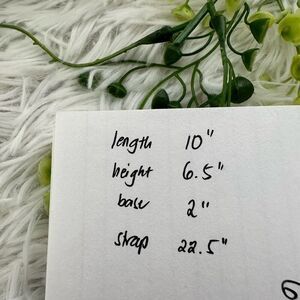 length 10"
height 6.5"
base 2"
strap 22.5"